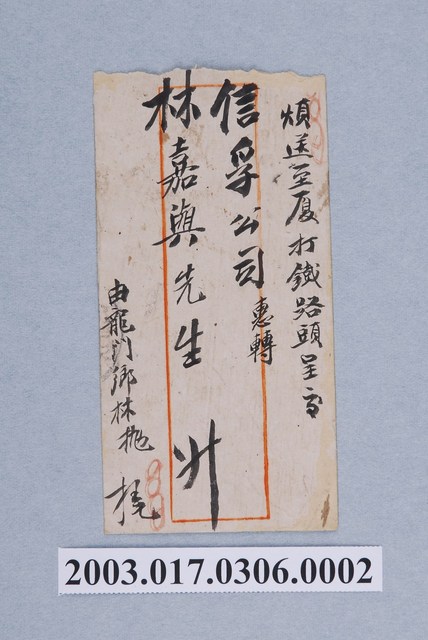 煩送至厦打鐵路頭呈交
信孚公司惠轉
林嘉興先生升
由龍門鄉林拋
2003.017.0306.0002